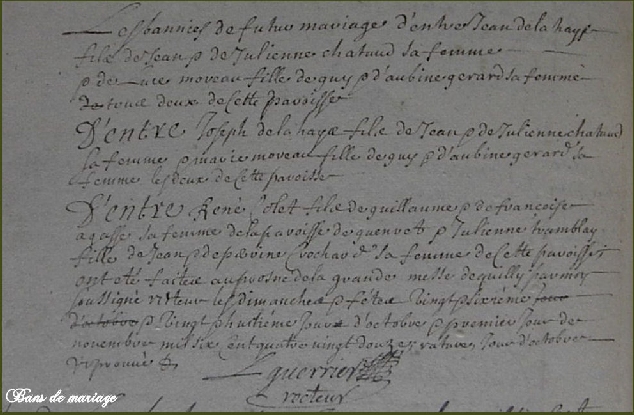 Les bannies de futur mariage d'entre Jean de la haye
fils de Jean p de Julienne chataud sa femme
p de moreau fille de guy p d'aubine gerard sa femme
de tous deux de Cette paroisse
D'entre Joseph de la haye fils de Jean p de Julienne chataud
sa femme p marie moreau fille de guy p d'aubine gerard sa
femme les deux de Cette paroisse
D'entre René Colet fils de guillaume p de francoise
agasse sa femme de la paroisse de guenvet p Julienne tramblay
fille de Jean p de perrine Crochard sa femme de Cette paroisse
ont été faites au prosne de la grande messe de quilly par moy
soussigné recteur les dimanches p fétes vingt p sixième jour
d'octobre p vingt p huitième jour d'octobre p premier jour de
novembre mil six cent quatre vingt douze ratures jour d'octobre
reprouvé
Lguerrier
recteur
Bans de mariage